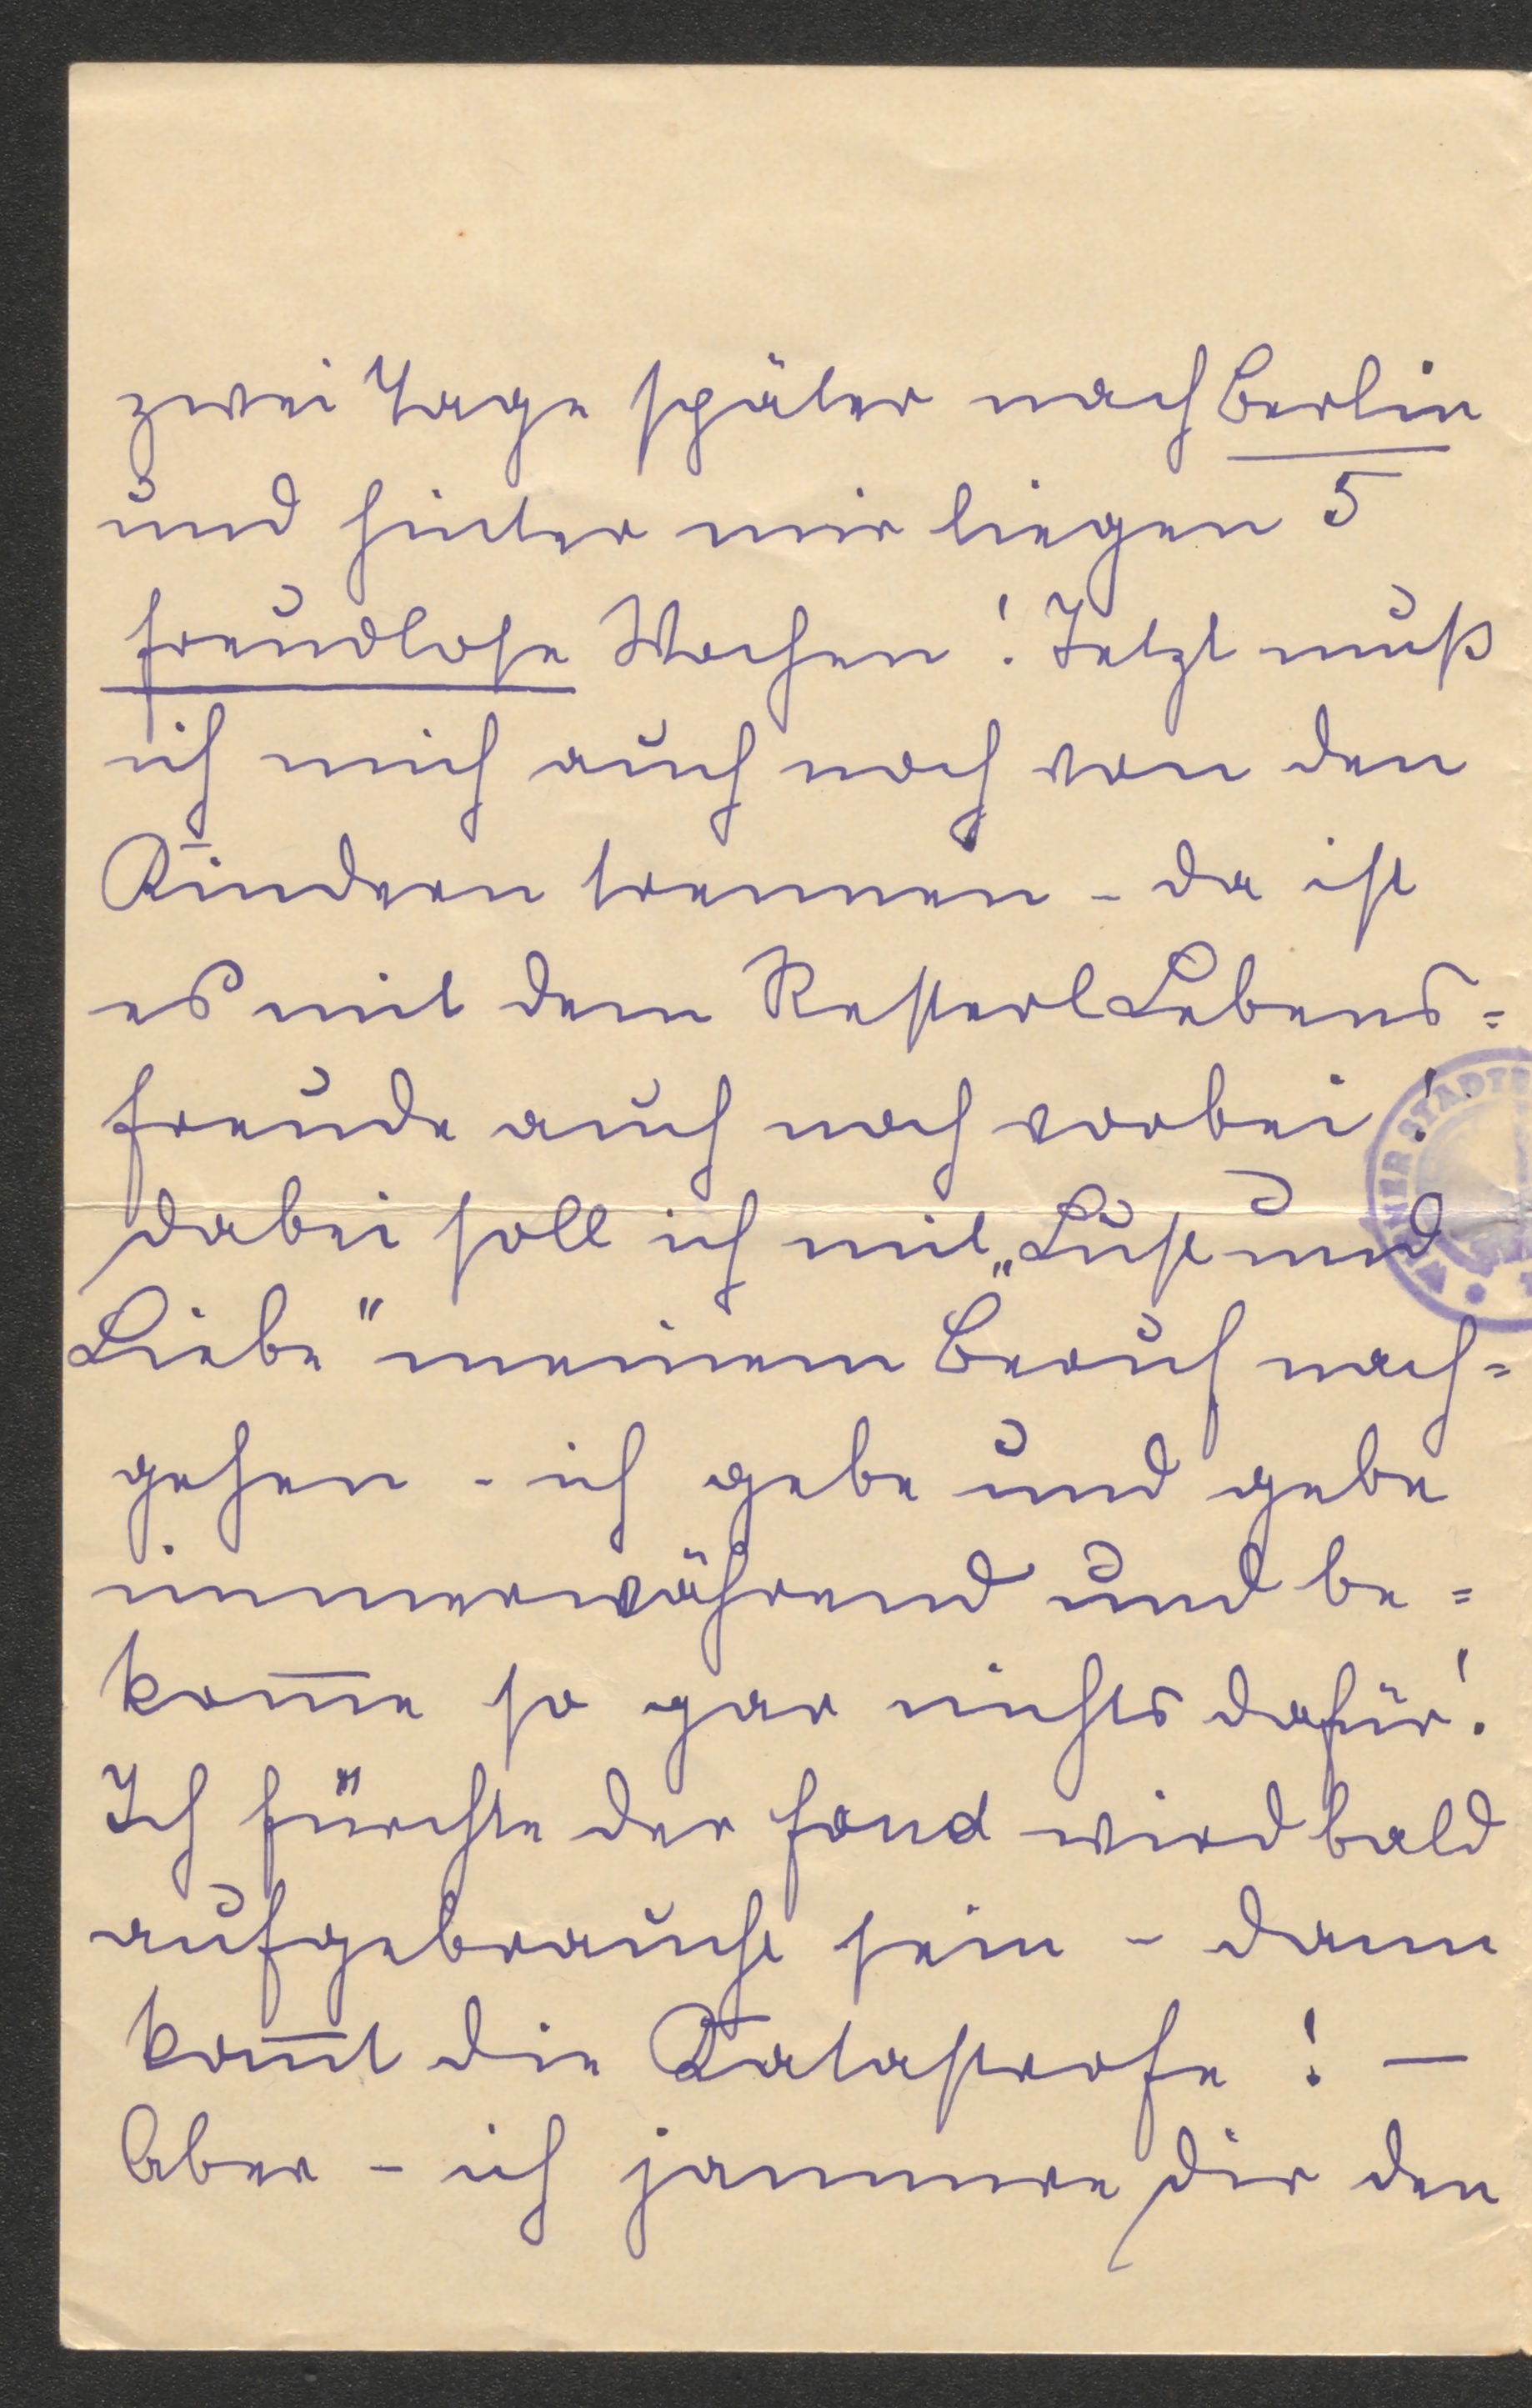 zwei Tage später nach Berlin
und hinter mir liegen 5
freudlose Wochen! Jetzt muß
ich mich auch noch von den
Kindern trennen - da ist
es mit dem Resterl Lebens=
freude auch noch vorbei!
Dabei soll ich mit „Lust und
Liebe" meinem Beruf nach=
gehen - ich gebe und gebe
immerwährend und be=
kom̅e so gar nichts dafür!
Ich fürchte der Fond wird bald
aufgebraucht sein - dann
kom̅t die Katastrofe! —
Aber - ich jammere Dir den